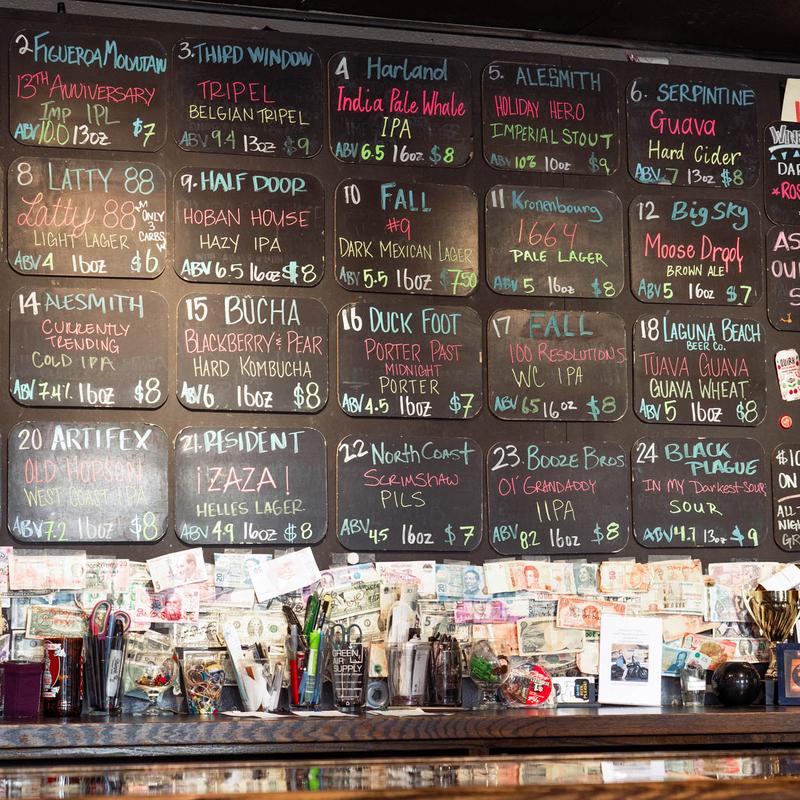 2 FIGUEROA MOUNTAIN
13TH ANNIVERSARY
Imp IPL
ABV 10.0 13oz $7
3. THIRD WINDOW
TRIPEL
BELGIAN TRIPEL
ABV 9.4 13oz $9
4 Harland
India Pale Whale
IPA
ABV 6.5 16oz $8
5. ALESMITH
HOLIDAY HERO
IMPERIAL STOUT
ABV 10% 10oz $9
6. SERPINTINE
Guava
Hard Cider
ABV 7 13oz $8
8 LATTY 88
Latty 88
ONLY
3
CARBS
LIGHT LAGER
ABV 4 16oz $6
9. HALF DOOR
HOBAN HOUSE
HAZY IPA
ABV 6.5 16oz $8
10 FALL
#9
DARK MEXICAN LAGER
ABV 5.5 16oz $7.50
11 Kronenbourg
1664
PALE LAGER
ABV 5 16oz $8
12 Big Sky
Moose Drool
BROWN ALE
ABV 5 16oz $7
14 ALESMITH
CURRENTLY
TRENDING
COLD IPA
ABV 7.4% 16oz $8
15 BÜCHA
BLACKBERRY & PEAR
HARD KOMBUCHA
ABV 6. 16oz $8
16 DUCK FOOT
PORTER PAST
MIDNIGHT
PORTER
ABV 4.5 16oz $7
17 FALL
100 RESOLUTIONS
WC IPA
ABV 65 16oz $8
18 LAGUNA BEACH
BEER CO.
TUAVA GUAVA
GUAVA WHEAT
ABV 5 16oz $8
20 ARTIFEX
OLD HOPSON
WEST COAST IPA
ABV 7.2 16oz $8
21. RESIDENT
¡ZAZA!
HELLES LAGER
ABV 4.9 16oz $8
22 North Coast
SCRIMSHAW
PILS
ABV 45 16oz $7
23. BOOZE BROS
Ol' GRANDADDY
IIPA
ABV 8.2 16oz $7
24 BLACK
PLAGUE
IN MY Darkest SOUR
SOUR
ABV 4.7 13oz $9
GREEN
AIR
SUPPLY